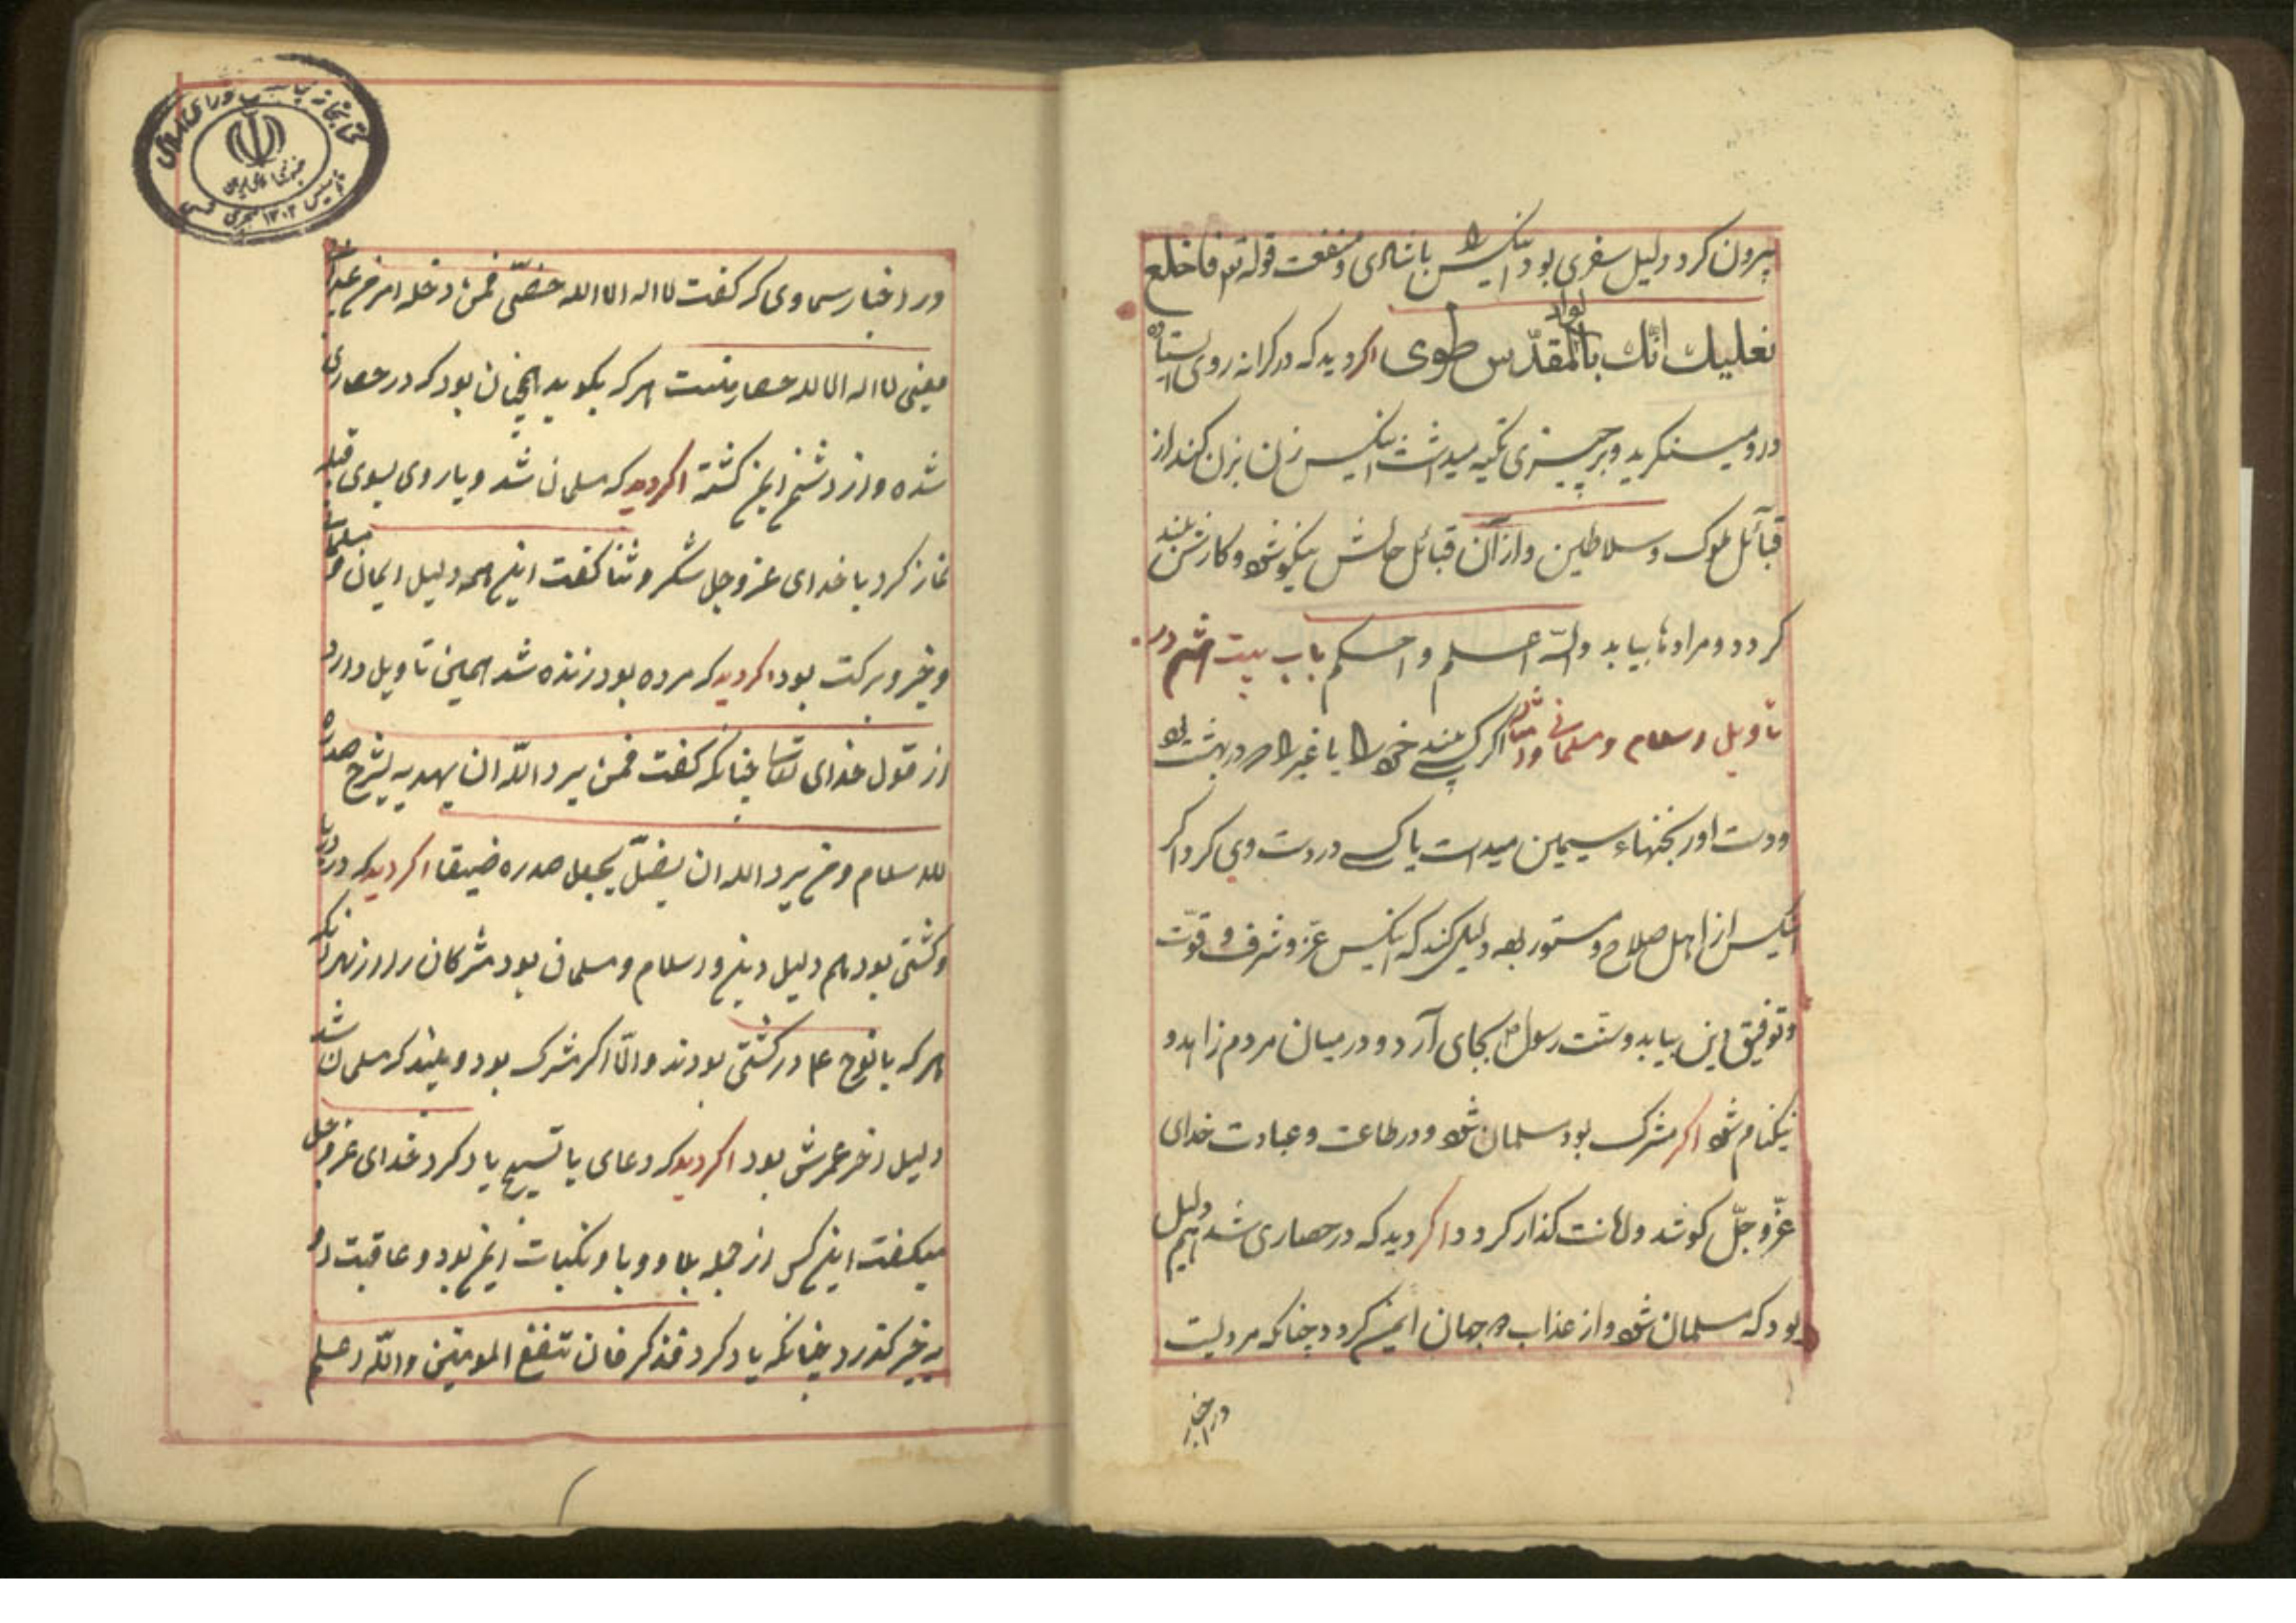 بیرون کرد دلیل سفری بود اینکس را باشادی و منفعت قوله تع فاخلع
نعلیك انّك بالواد المقدّس طوی اکر دید که در کرانه روی ایستاده
درو مینکرید و بر چیزی تکیه میداشت اینکس زن بزن کند از
قبائل ملوک و سلاطین و از آن قبائل حالش نیکو شود و کارش بلند
کردد و مرادها بیابد واللّه اعلم و احکم باب بیست هشتم در
تاویل اسلام و مسلمانی و اکر کسی بیند خود را یا غیر را در بهشت بود
ودست اورنجنهاء سیمین میداشت یا کسی در دست وی کرد اکر
اینکس از اهل صلاح و مستور بود دلیل کند که اینکس عزّ و شرف و قوّت
و توفیق این بیابد و سنّت رسول ص بجای آرد و در میان مردم زاهد و
نیکنام شود اکر مشرک بود مسلمان شود و در طاعت و عبادت خدای
عزّ و جلّ کوشد و امانت کذار کردد اکر دید که در حصاری شد هم دلیل
بود که مسلمان شود و از عذاب در جهان ایمن کردد چنانکه مرویست
در اخبا
در اخبار سماوی که کفت لا اله الا الله حصنی فمن دخله امن من عذابی
یعنی لا اله الا لله حصار منست هر که بکوید همچنان بود که در حصاری
شده و از دشمن ایمن کشته اکر دید که مسلمان شد و یا روی بسوی قبله
نماز کرد یا خدای عز و جل شکر و ثنا کفت این همه دلیل ایمان و مسلمانی
و خیر و برکت بود اکر دید که مرده بود زنده شد همین تاویل دارد
از قول خدای تعالی چنانکه کفت فمن یرد اللّه ان یهدیه یشرح صدره
للاسلام و من یرد الله ان یضلّ یجعل صدره ضیقا اکر دید که در دریا
و کشتی بود هم دلیل دین و اسلام و مسلمان بود مشرکان را از بهر آنکه
هر که با نوح ع در کشتی بودند و الّا اکر مشرک بود و بیند که مسلمان شد
دلیل اخر عمرش بود اکر دید که دعای یا تسبیح یاد کرد خدای عز و جل
میکفت این کس از جمله بلا و وبا و نکبات ایمن بود و عاقبت او
به خیر کذرد چنانکه یاد کرد فذکر فان تنفع المومنین واللّه اعلم
کتابخانه مجلس شورای اسلامی
جمهوری اسلامی ایران
تاسیس ۱۳۰۲ هجری شمسی